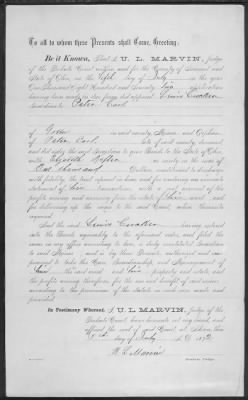 To all to whom these Presents shall Come, Greeting:
Be it Known, That I U. L. MARVIN, Judge
of the Probate Court within and for the County of Summit and
State of Ohio, on the Fifth day of July in the year
One Thousand Eight Hundred and Seventy Two application
having been made, to me did appoint Lewis
Guardian to Peter Carl
of Green in said county, Minor and Orphan
of Peter Carl late of said county, deceased
and did oblige the said Guardian to give Bonds to the State of Ohio,
with Elizabeth as surety in the sum of
One thousand Dollars, conditioned to discharge
with fidelity, the trust reposed in him, and for rendering an accurate
statement of his transactions, with a just account of the
profits arising and accruing from the estate of said ward and
for delivering up the same to the said Court, when thereunto
required.
And the said Lewis having entered
into the Bonds agreeably to the aforesaid order, and filed the
same in my office according to law, is duly constituted Guardian
to said Minor, and is by these Presents, authorized and em-
powered to take the Care, Guardianship, and Management of
the said ward and his property and estate, and
the profits arising therefrom, for the use and benefit of said minor,
according to the provisions of the Statute in such case made and
provided.
In Testimony Whereof, I, U. L. MARVIN, Judge of the
Probate Court, have hereunto set my hand, and
affixed the seal of said Court, at Akron, this
day of July A. D. 1872
U. L. Marvin
Probate Judge.